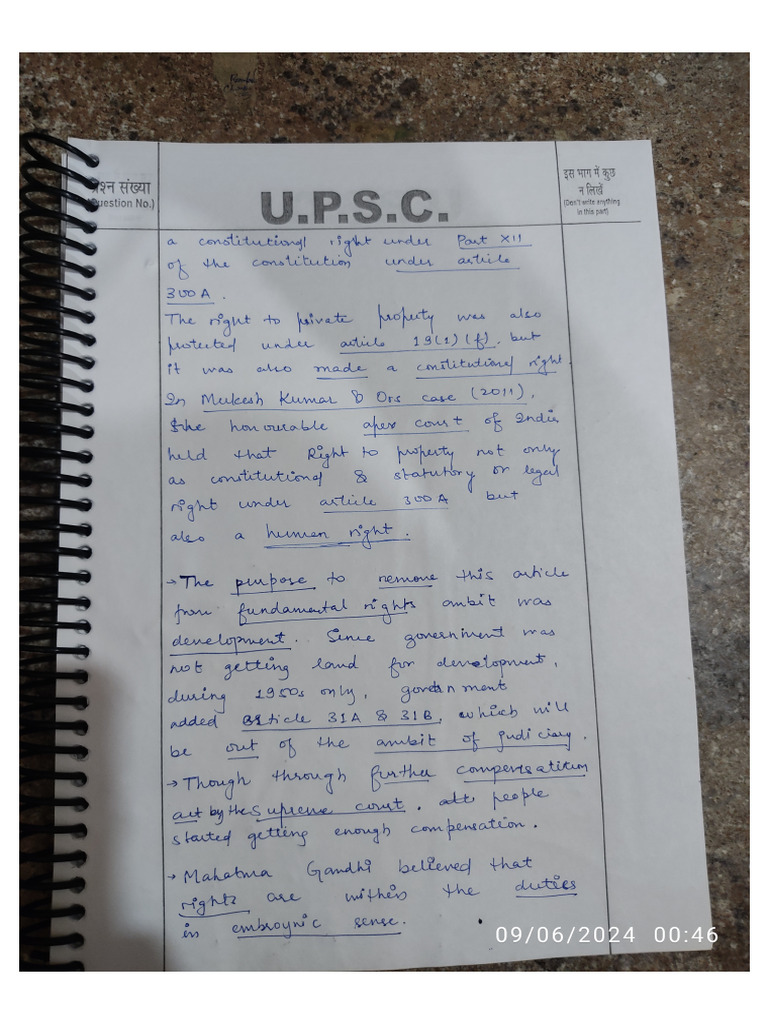 प्रश्न संख्या
(Question No.)
U.P.S.C.
इस भाग में कुछ
न लिखें
(Don't write anything
in this part)
a constitutional right under Part XII
of the constitution under article
300A.
The right to private property was also
protected under article 19(1)(f). but
it was also made a constitutional right.
In Mukesh Kumar & Ors case (2011),
the honourable apex court of India
held that Right to property not only
as constitutional & statutory or legal
right under article 300A but
also a human right.
→ The purpose to remove this article
from fundamental rights ambit was
development. Since government was
not getting land for development,
during 1950s only, government
added article 31A & 31B, which will
be out of the ambit of judiciary.
→ Though through further compensatition
act by the supreme court. people
started getting enough compensation.
→ Mahatma Gandhi believed that
rights are within the duties
in embroynic sense.
09/06/2024 00:46